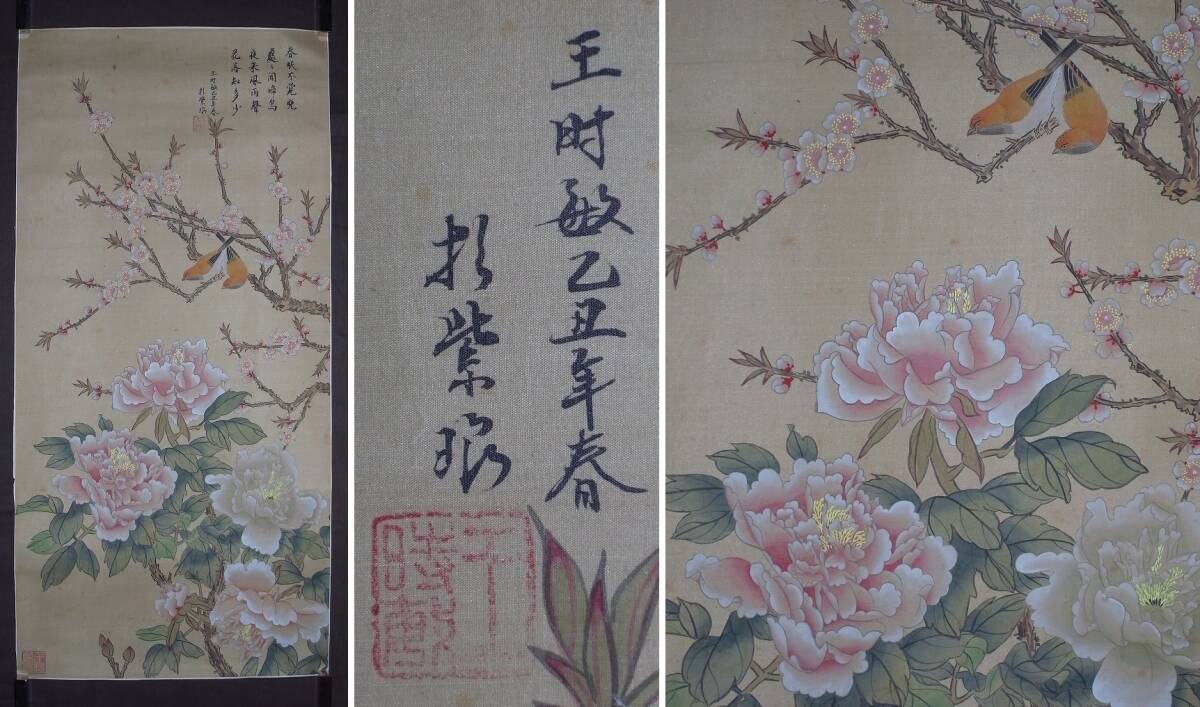 春眠不覺曉
處〻聞啼鳥
夜來風雨聲
花落知多少
王时敏乙丑年春
扵紫琅
王时敏乙丑年春
扵紫琅
王
時敏